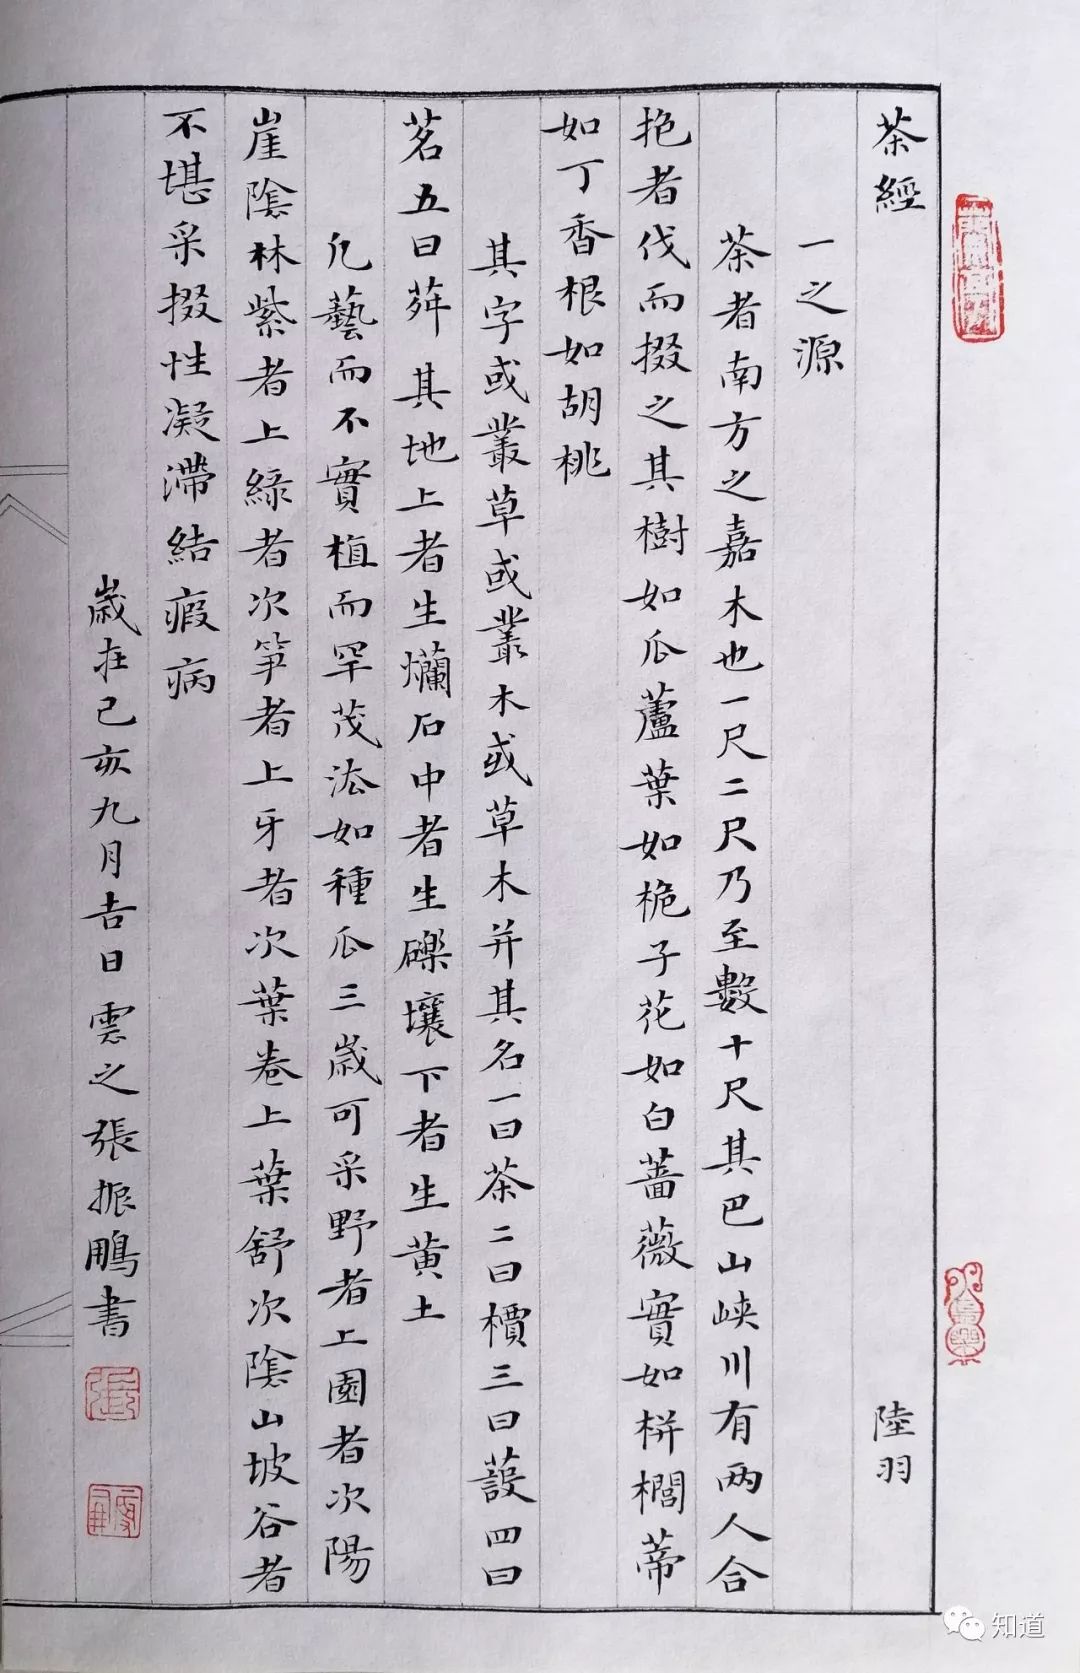 茶經 陸羽
一之源
茶者南方之嘉木也一尺二尺乃至數十尺其巴山峡川有两人合
抱者伐而掇之其樹如瓜蘆葉如栀子花如白薔薇實如栟櫚蒂
如丁香根如胡桃
其字或叢草或叢木或草木并其名一曰茶二曰檟三曰蔎四曰
茗五曰荈其地上者生爛石中者生礫壤下者生黄土
凡藝而不實植而罕茂法如種瓜三歲可采野者上園者次陽
崖陰林紫者上緑者次笋者上牙者次葉卷上葉舒次陰山坡谷者
不堪采掇性凝滯結瘕病
歲在己亥九月吉日雲之張振鵬書
知道